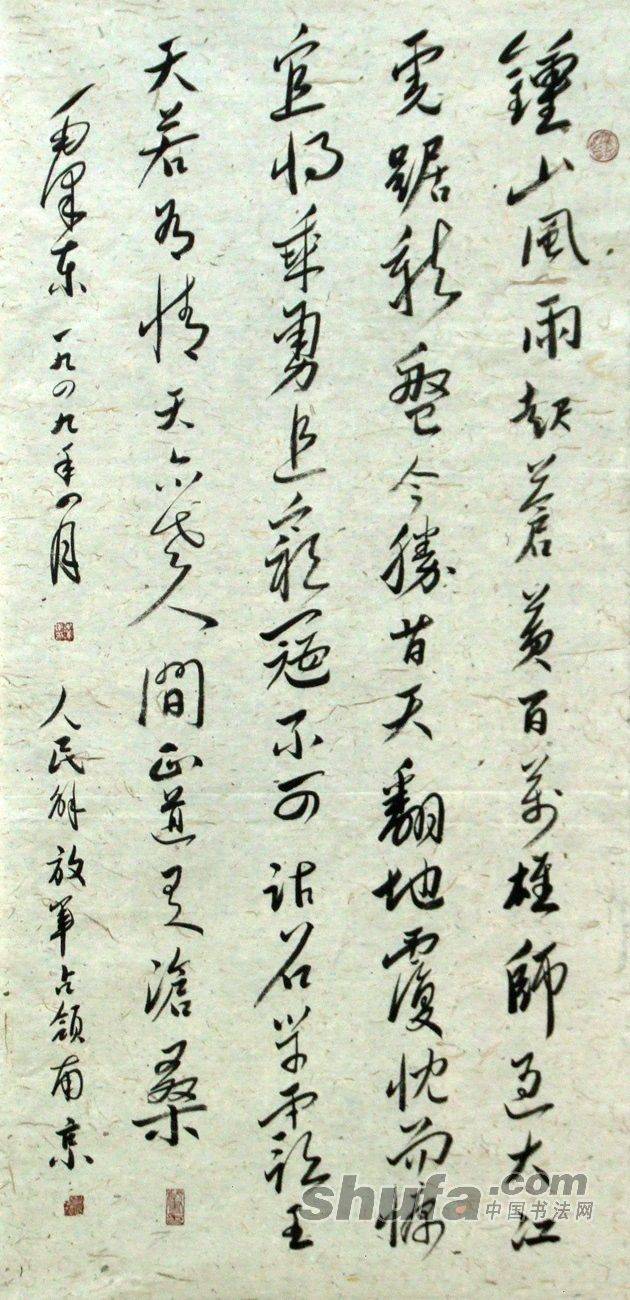 鍾山風雨起蒼黃百萬雄師過大江
虎踞龍盤今勝昔天翻地覆慨而慷
宜將乘勇追窮寇不可沽名學霸王
天若有情天亦老人間正道是滄桑
毛澤東一九四九年四月 人民解放軍占領南京
shufa.com
中国书法网